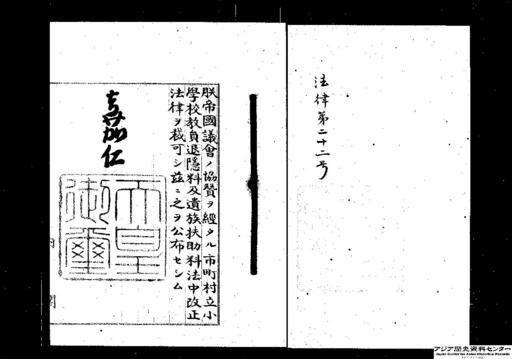 法律第二十二号
朕帝國議會ノ協贊ヲ經タル市町村立小
學校教員退隱料及遺族扶助料法中改正
法律ヲ裁可シ茲ニ之ヲ公布セシム
嘉仁
天皇
御璽
内閣
アジア歴史資料センター
Japan Center for Asian Historical Records